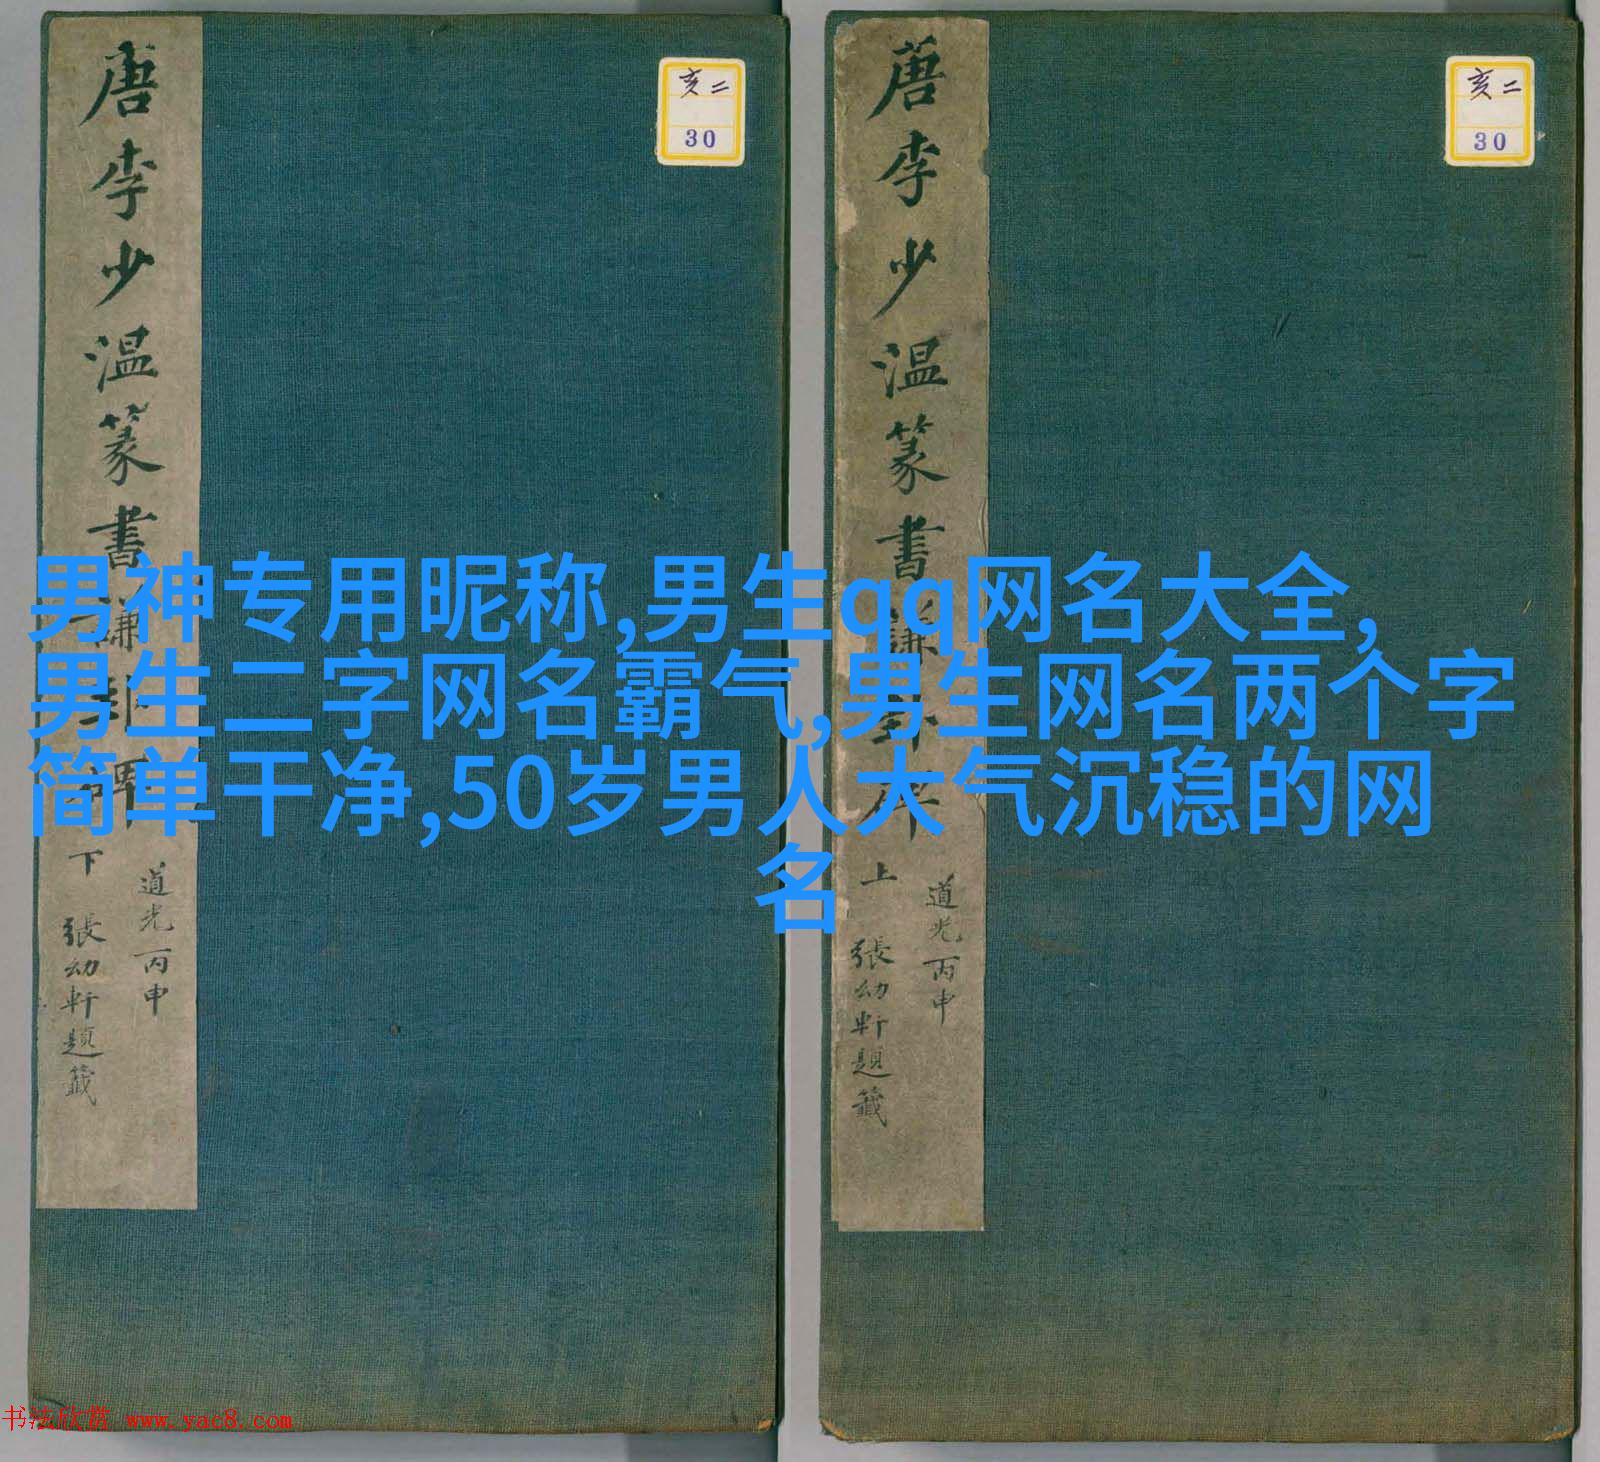 唐李少温篆書謙卦碑
下
道光丙申
張幼軒題籤
亥二
30
唐李少温篆書謙卦碑
上
道光丙申
張幼軒題籤
亥二
30
男神专用昵称,男生qq网名大全,
男生二字网名霸气,男生网名两个字
简单干净,50岁男人大气沉稳的网
名
书法欣赏 www.yac8.com